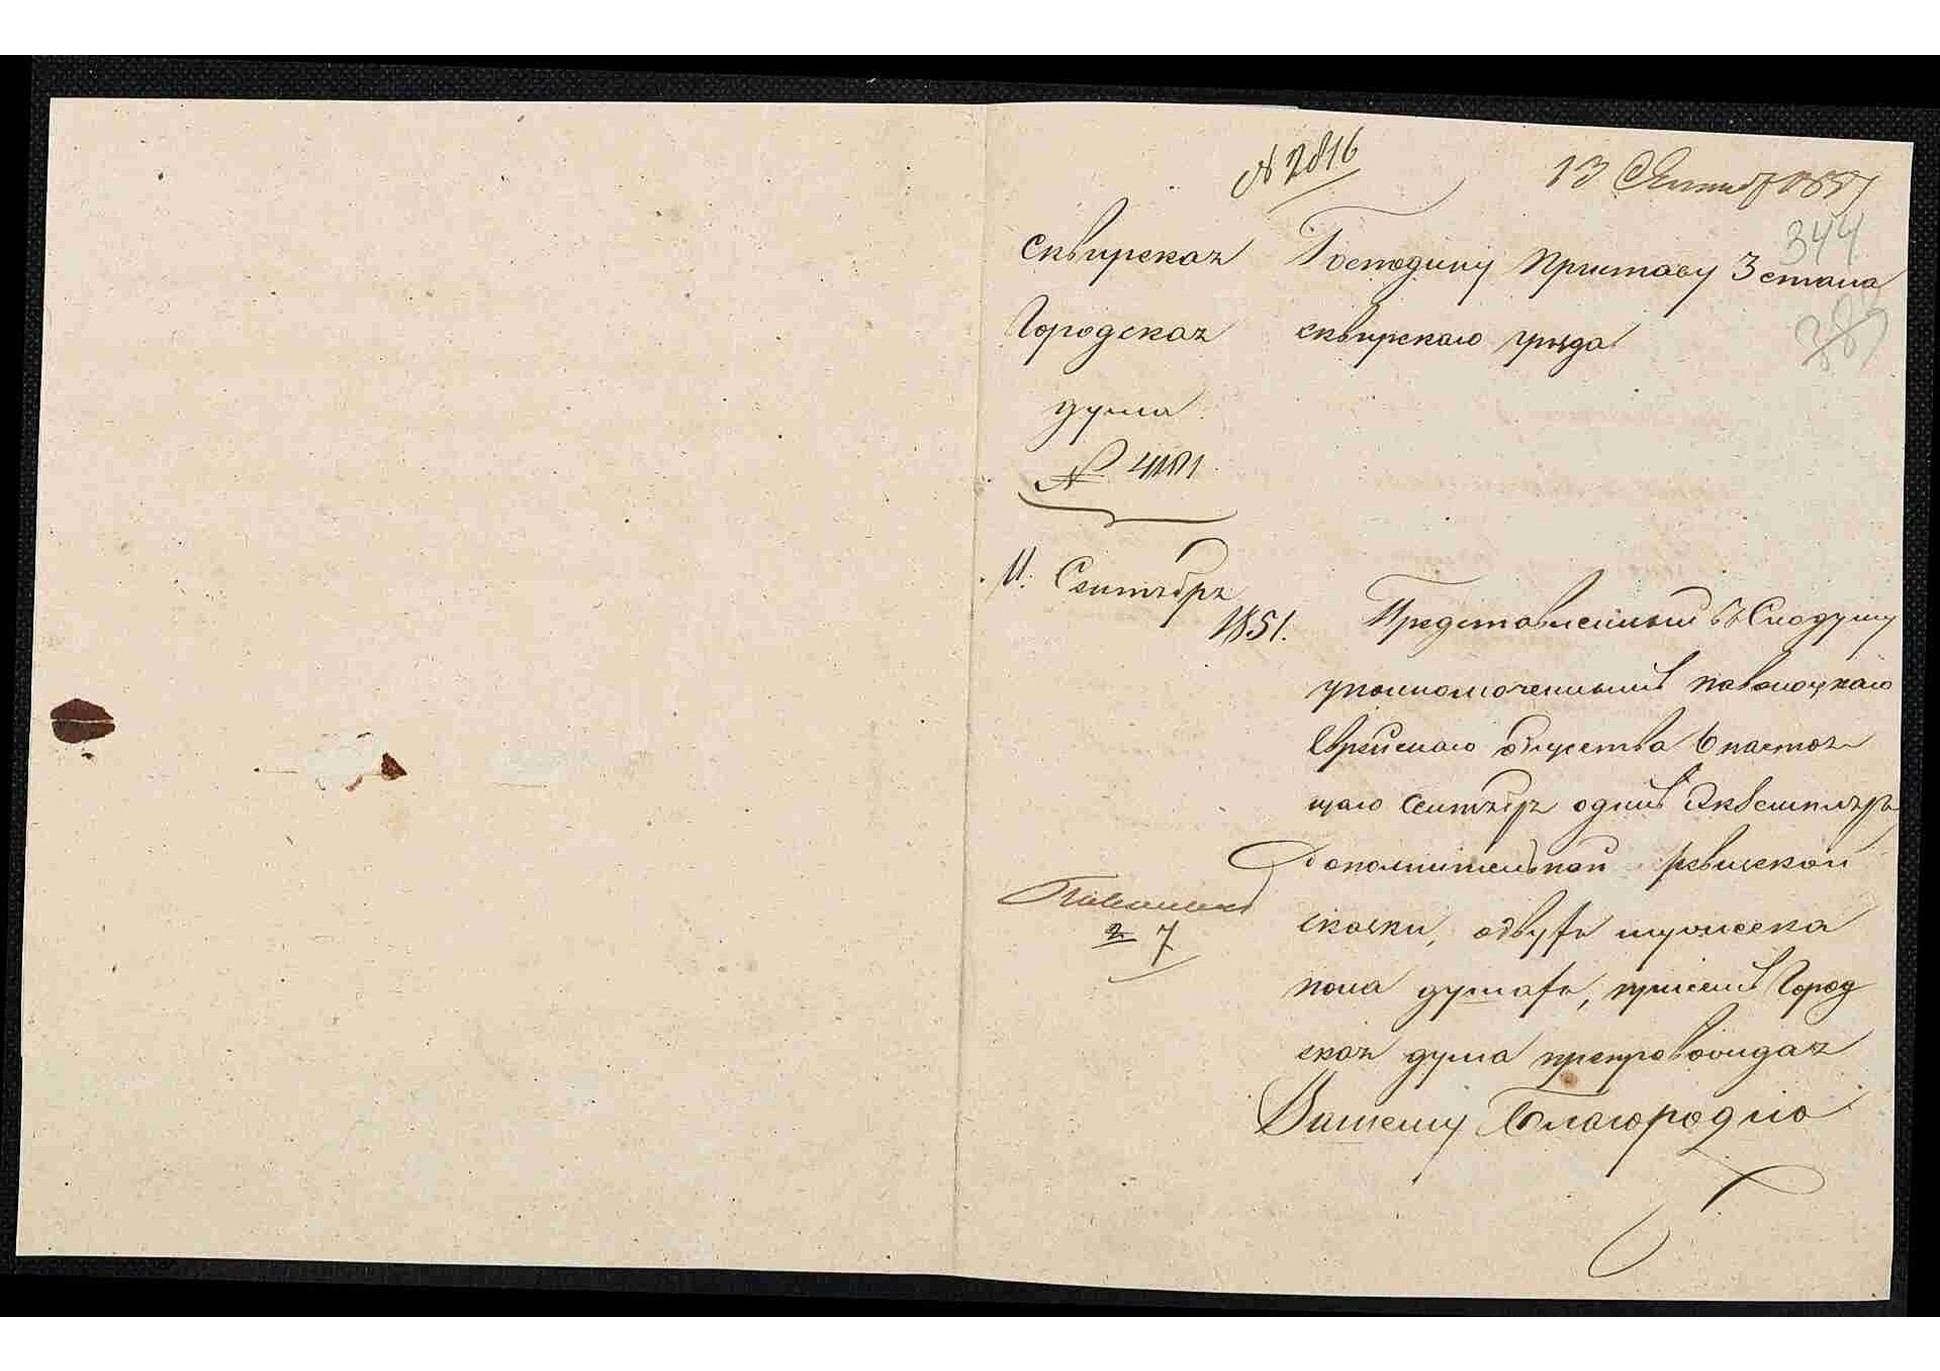 № 2816
13 Сентяб 1851
344
Сквирская
Городская
дума
№ 4181
11. Сентября
1851.
Господину Приставу 3 стана
сквирскаго уезда
Представленный въ Сіюдуму
уполномоченнымъ паволоцкаго
Еврейскаго общества 6 настоя
щаго Сентября одинъ Экземпляръ
дополнительной ревизской
сказки, одвухъ мужеска
пола душахъ, присемъ Город
ская дума препровождая
Вашему Благородію
7